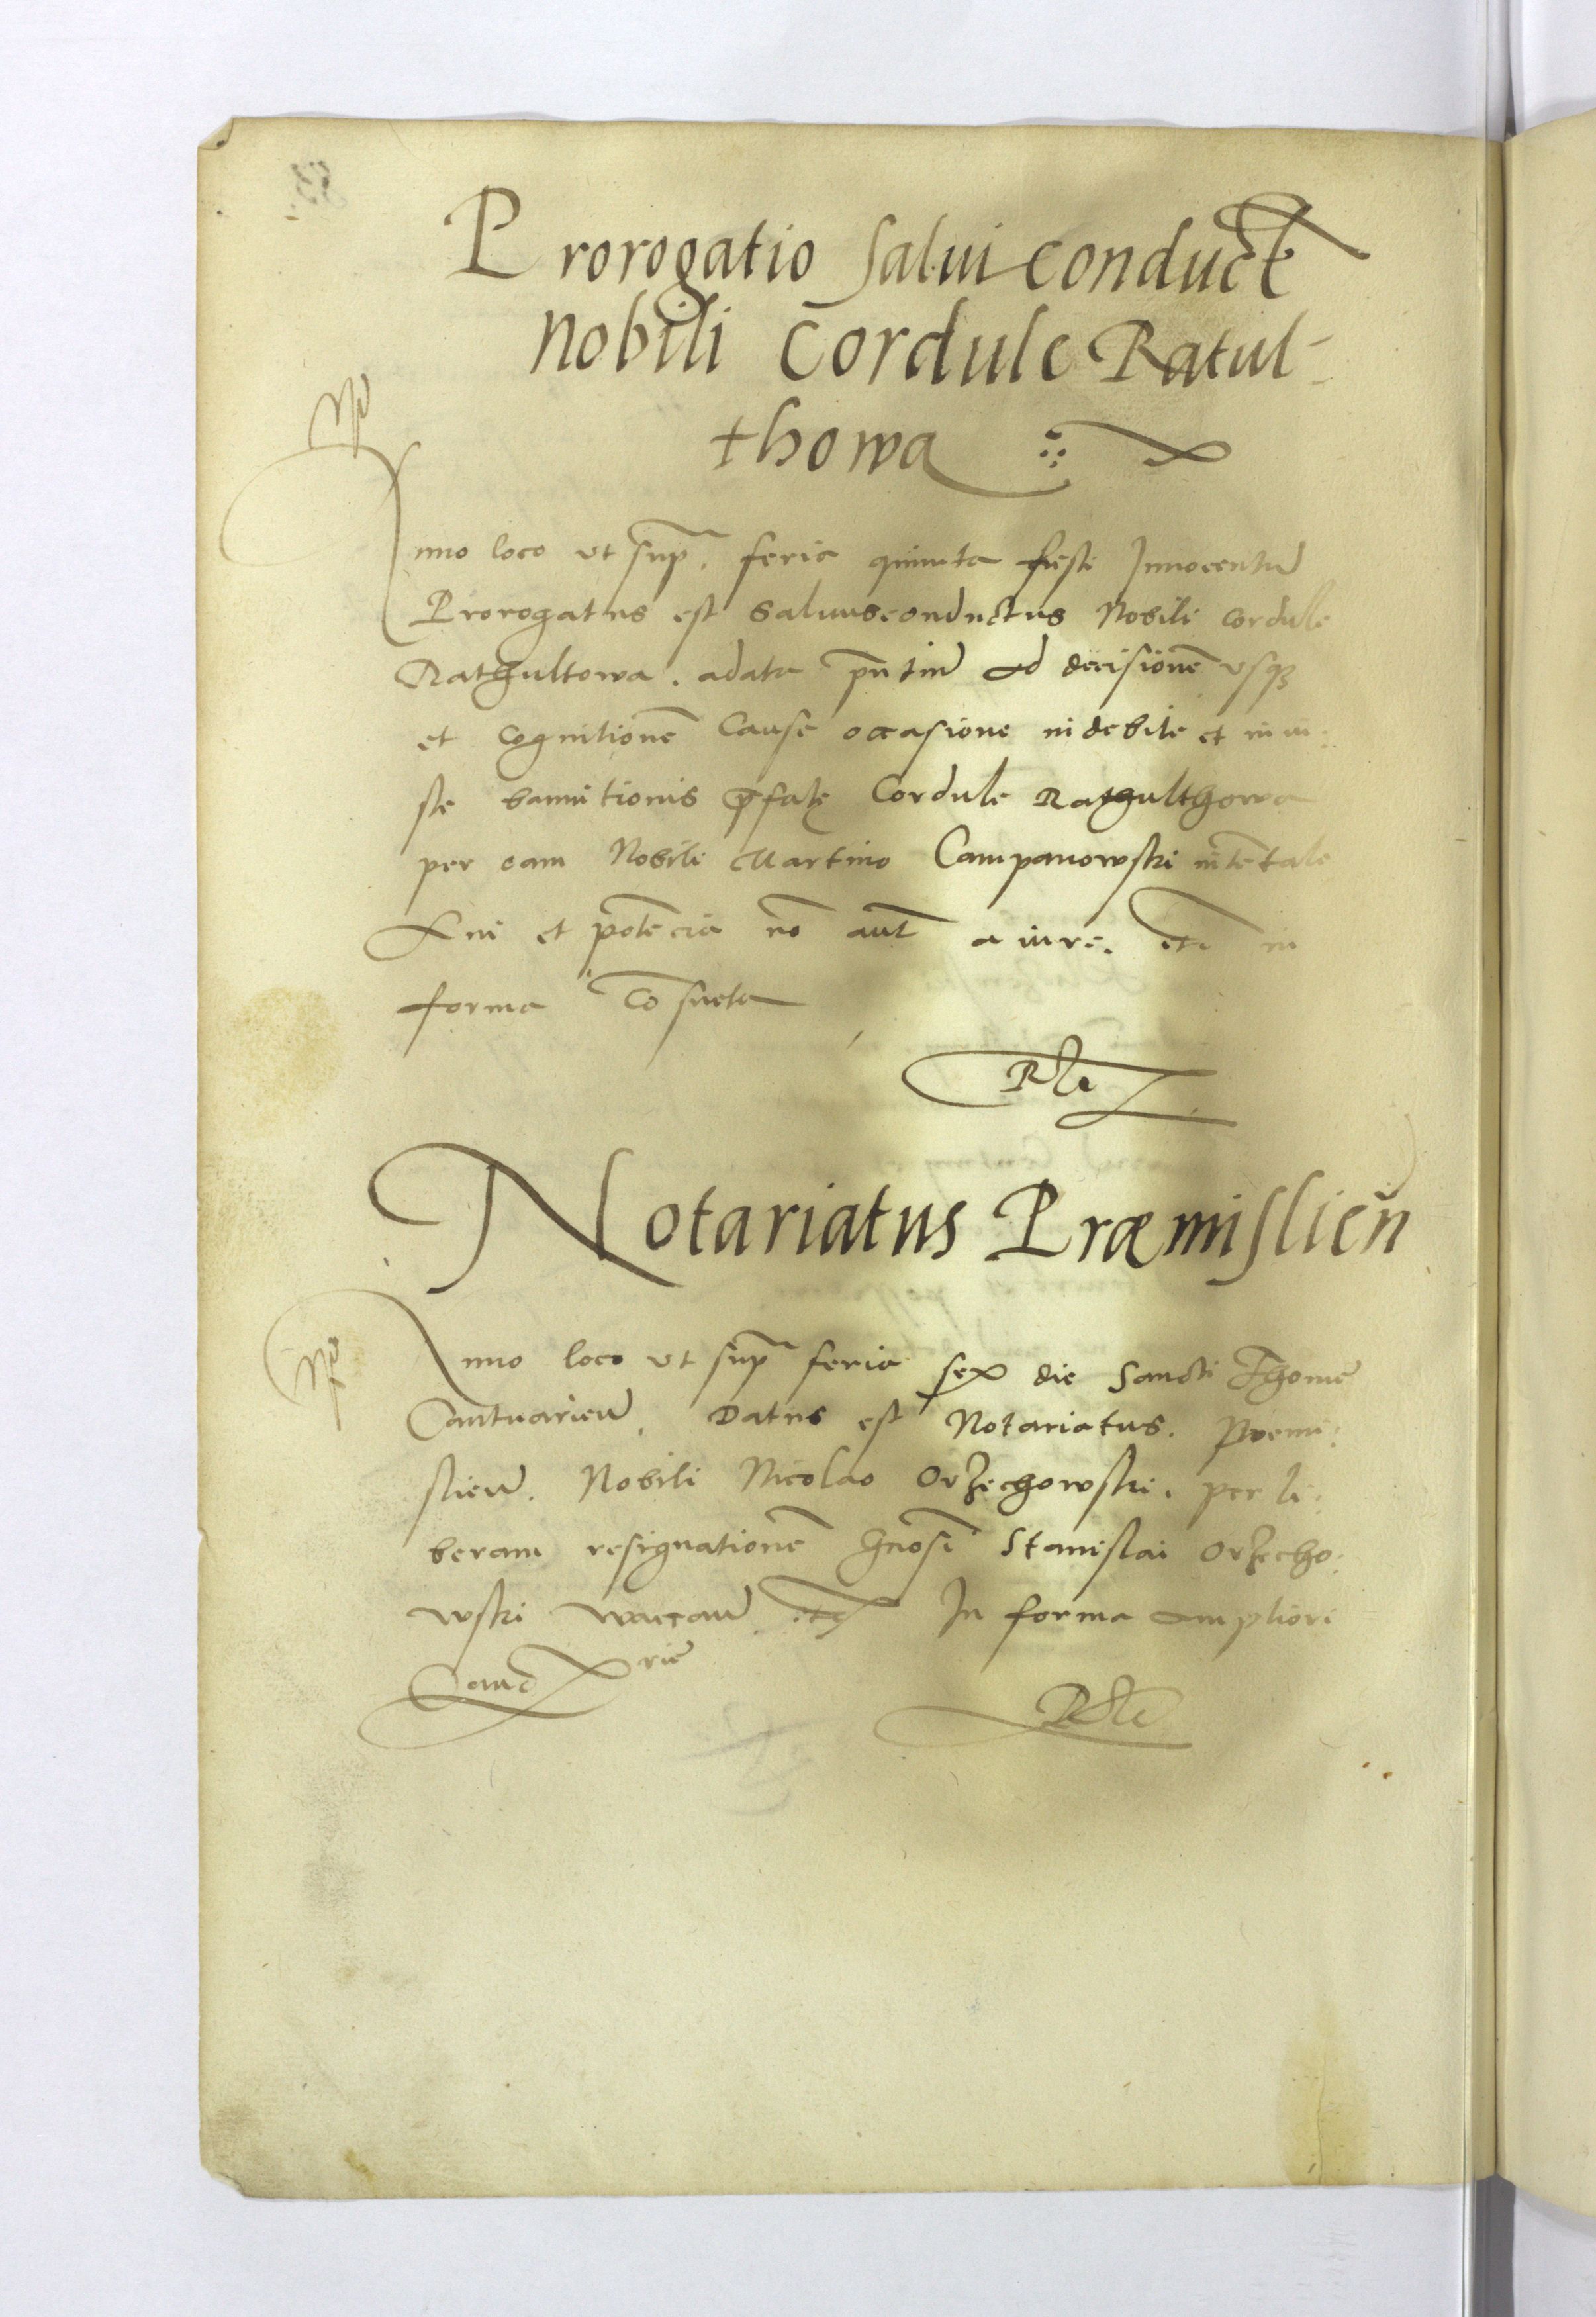 Prorogatio salui conduct
Nobili Cordule Ratul-
thowa
Anno loco ut sup. feria quinnta festi Innocentu
Prorogatus est saluusconductus Nobili Cordule
Rathultowa. adata pntiu ad decisione usq
et cognitione Cause occasione indebite et iniu:
ste bannitionis pfate Cordule Rathulthowa
per eam Nobili Martino Campanowski intetate
et potecia no aut a iure. etc in
forma Cosueta
Notariatus Præmislien
Anno loco ut sup feria sex die Sancti Thome
Cantuarien. Datus est Notariatus. Premi:
slien. Nobili Nicolao Orzechowski. per li:
beram resignatione Gnosi Stanislai Orzecho:
wski etc In forma ampliori
Canc rie